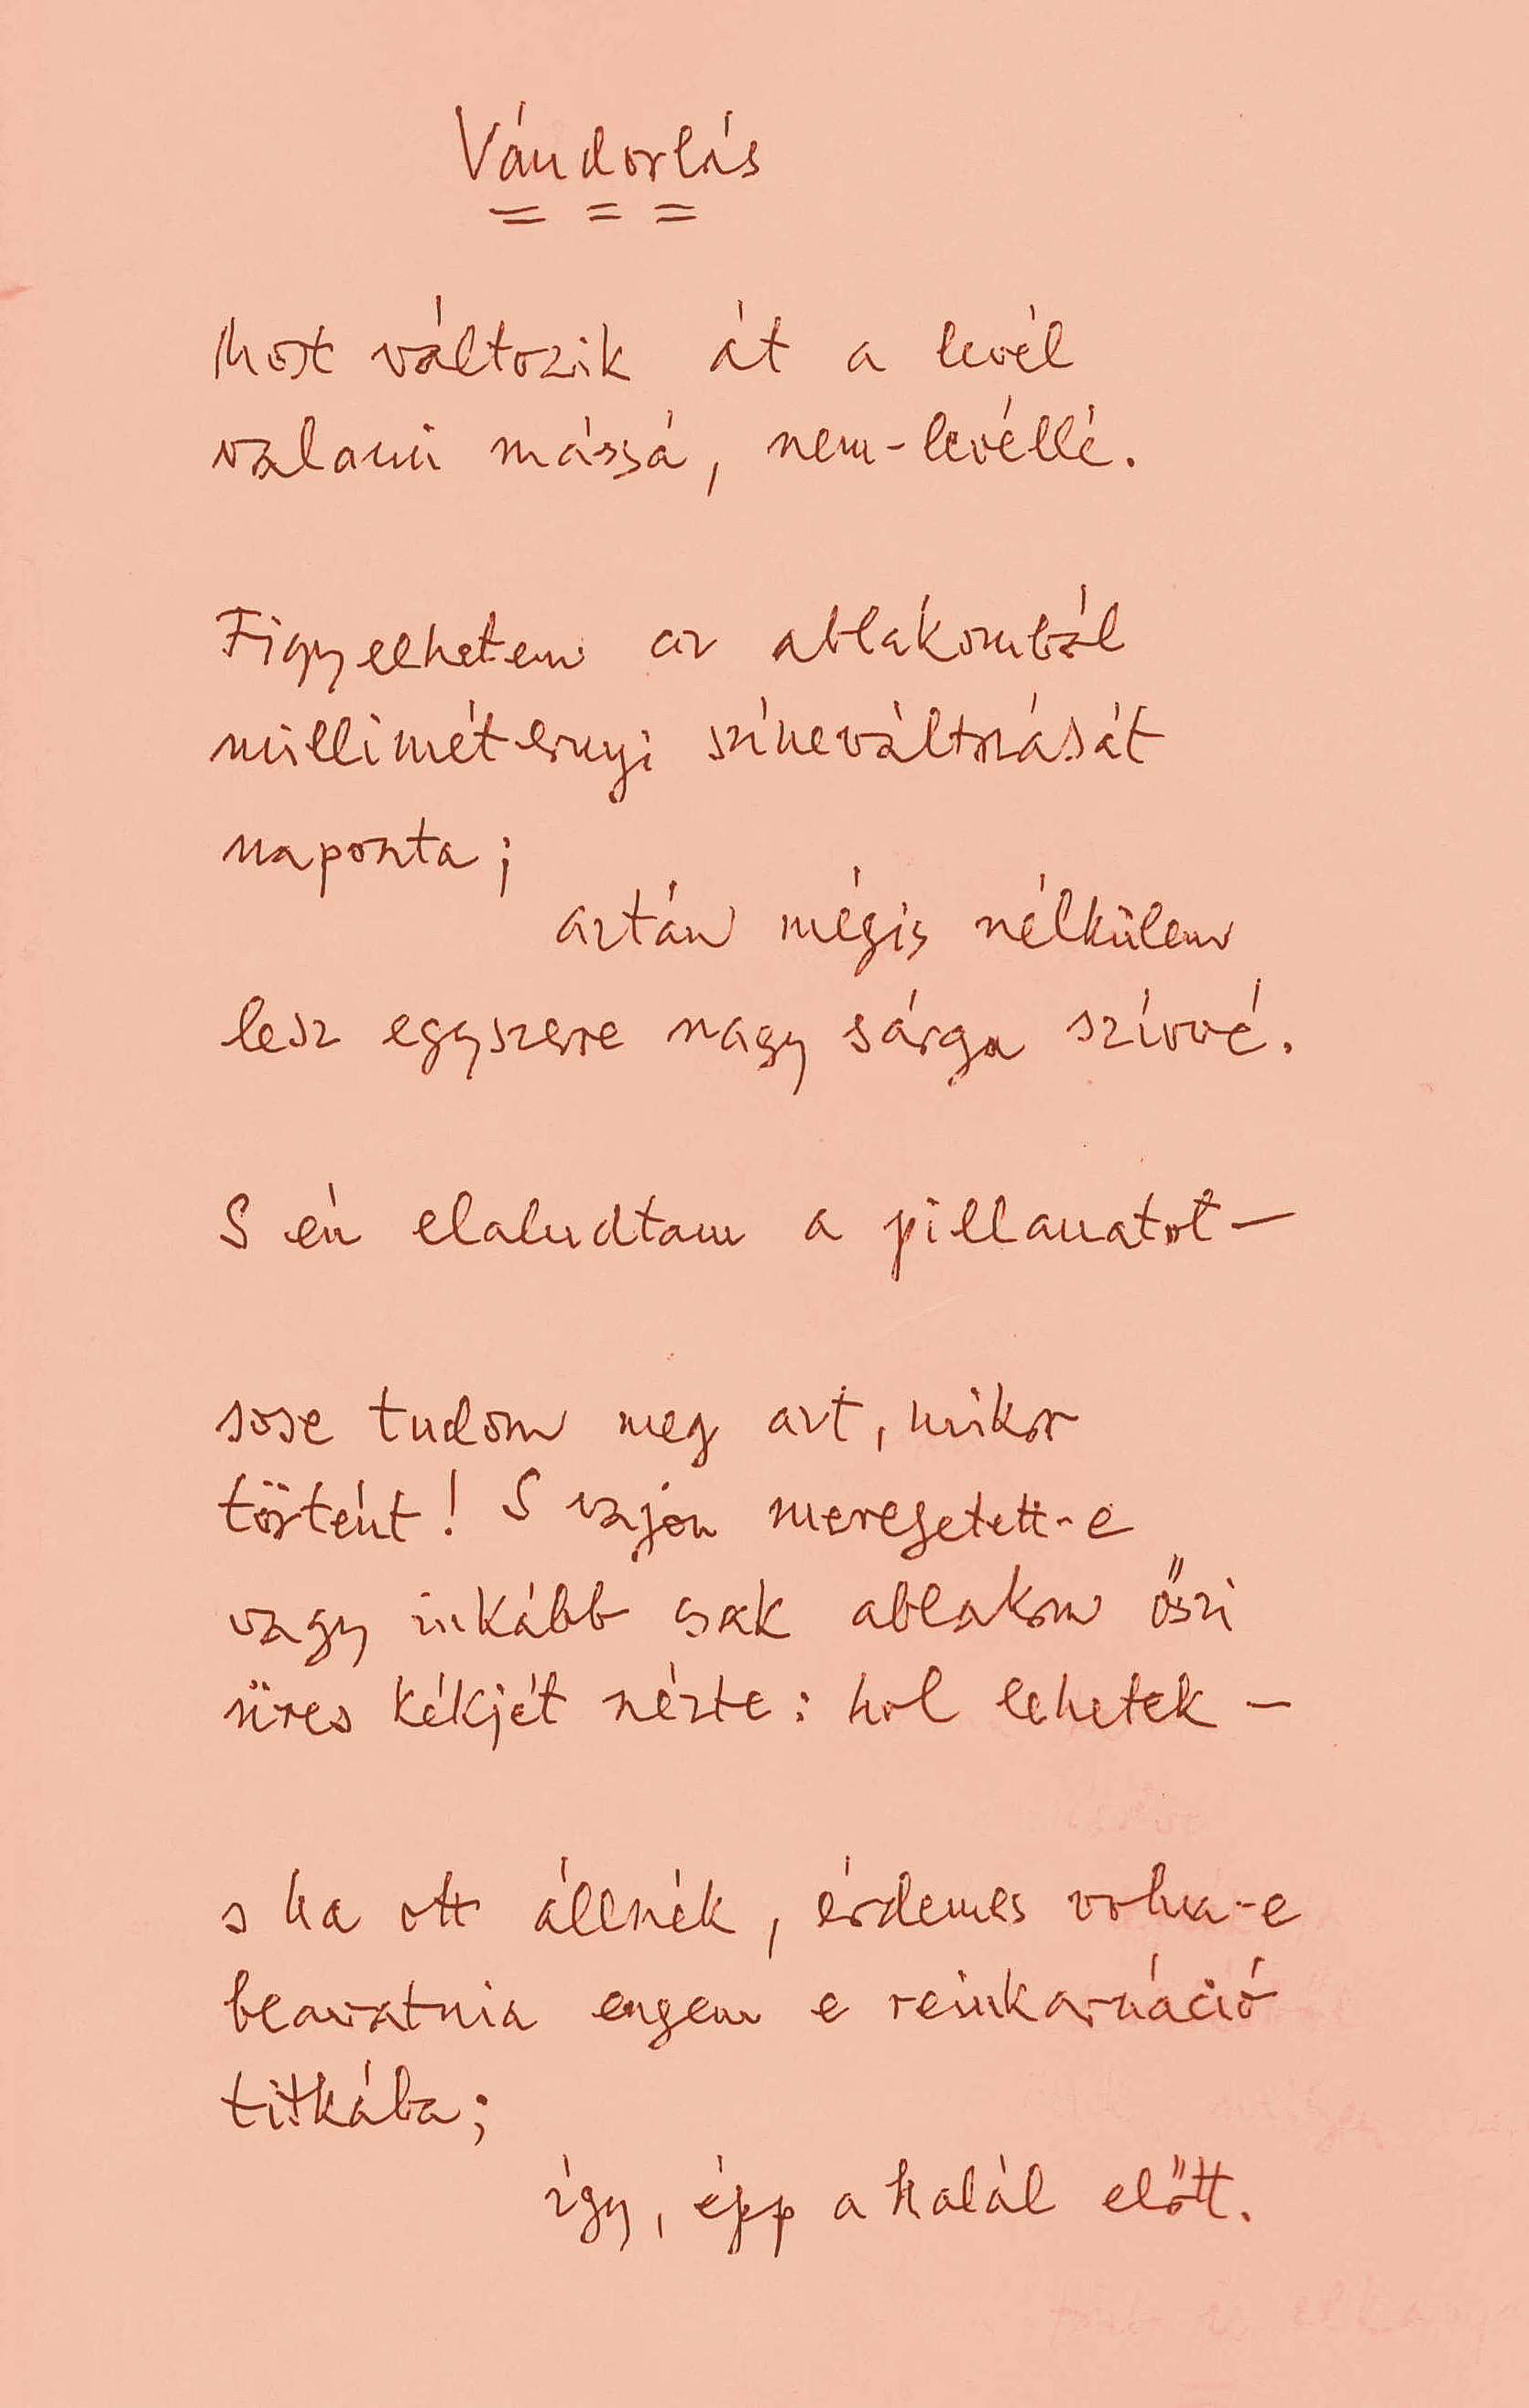 Vándorlás
Most változik át a levél
valami mássá, nem-levéllé.
Figyelhetem az ablakomból
milliméternyi színeváltozását
naponta;
aztán mégis nélkülem
lesz egyszerre nagy sárga szívvé.
S én elaludtam a pillanatot—
sose tudom meg azt, mikor
történt! S vajon meregetett-e
vagy inkább csak ablakom őszi
üres kékjét nézte: hol lehetek —
s ha ott állnék, érdemes volna-e
beavatnia engem e reinkarnáció
titkába;
így, épp a halál előtt.